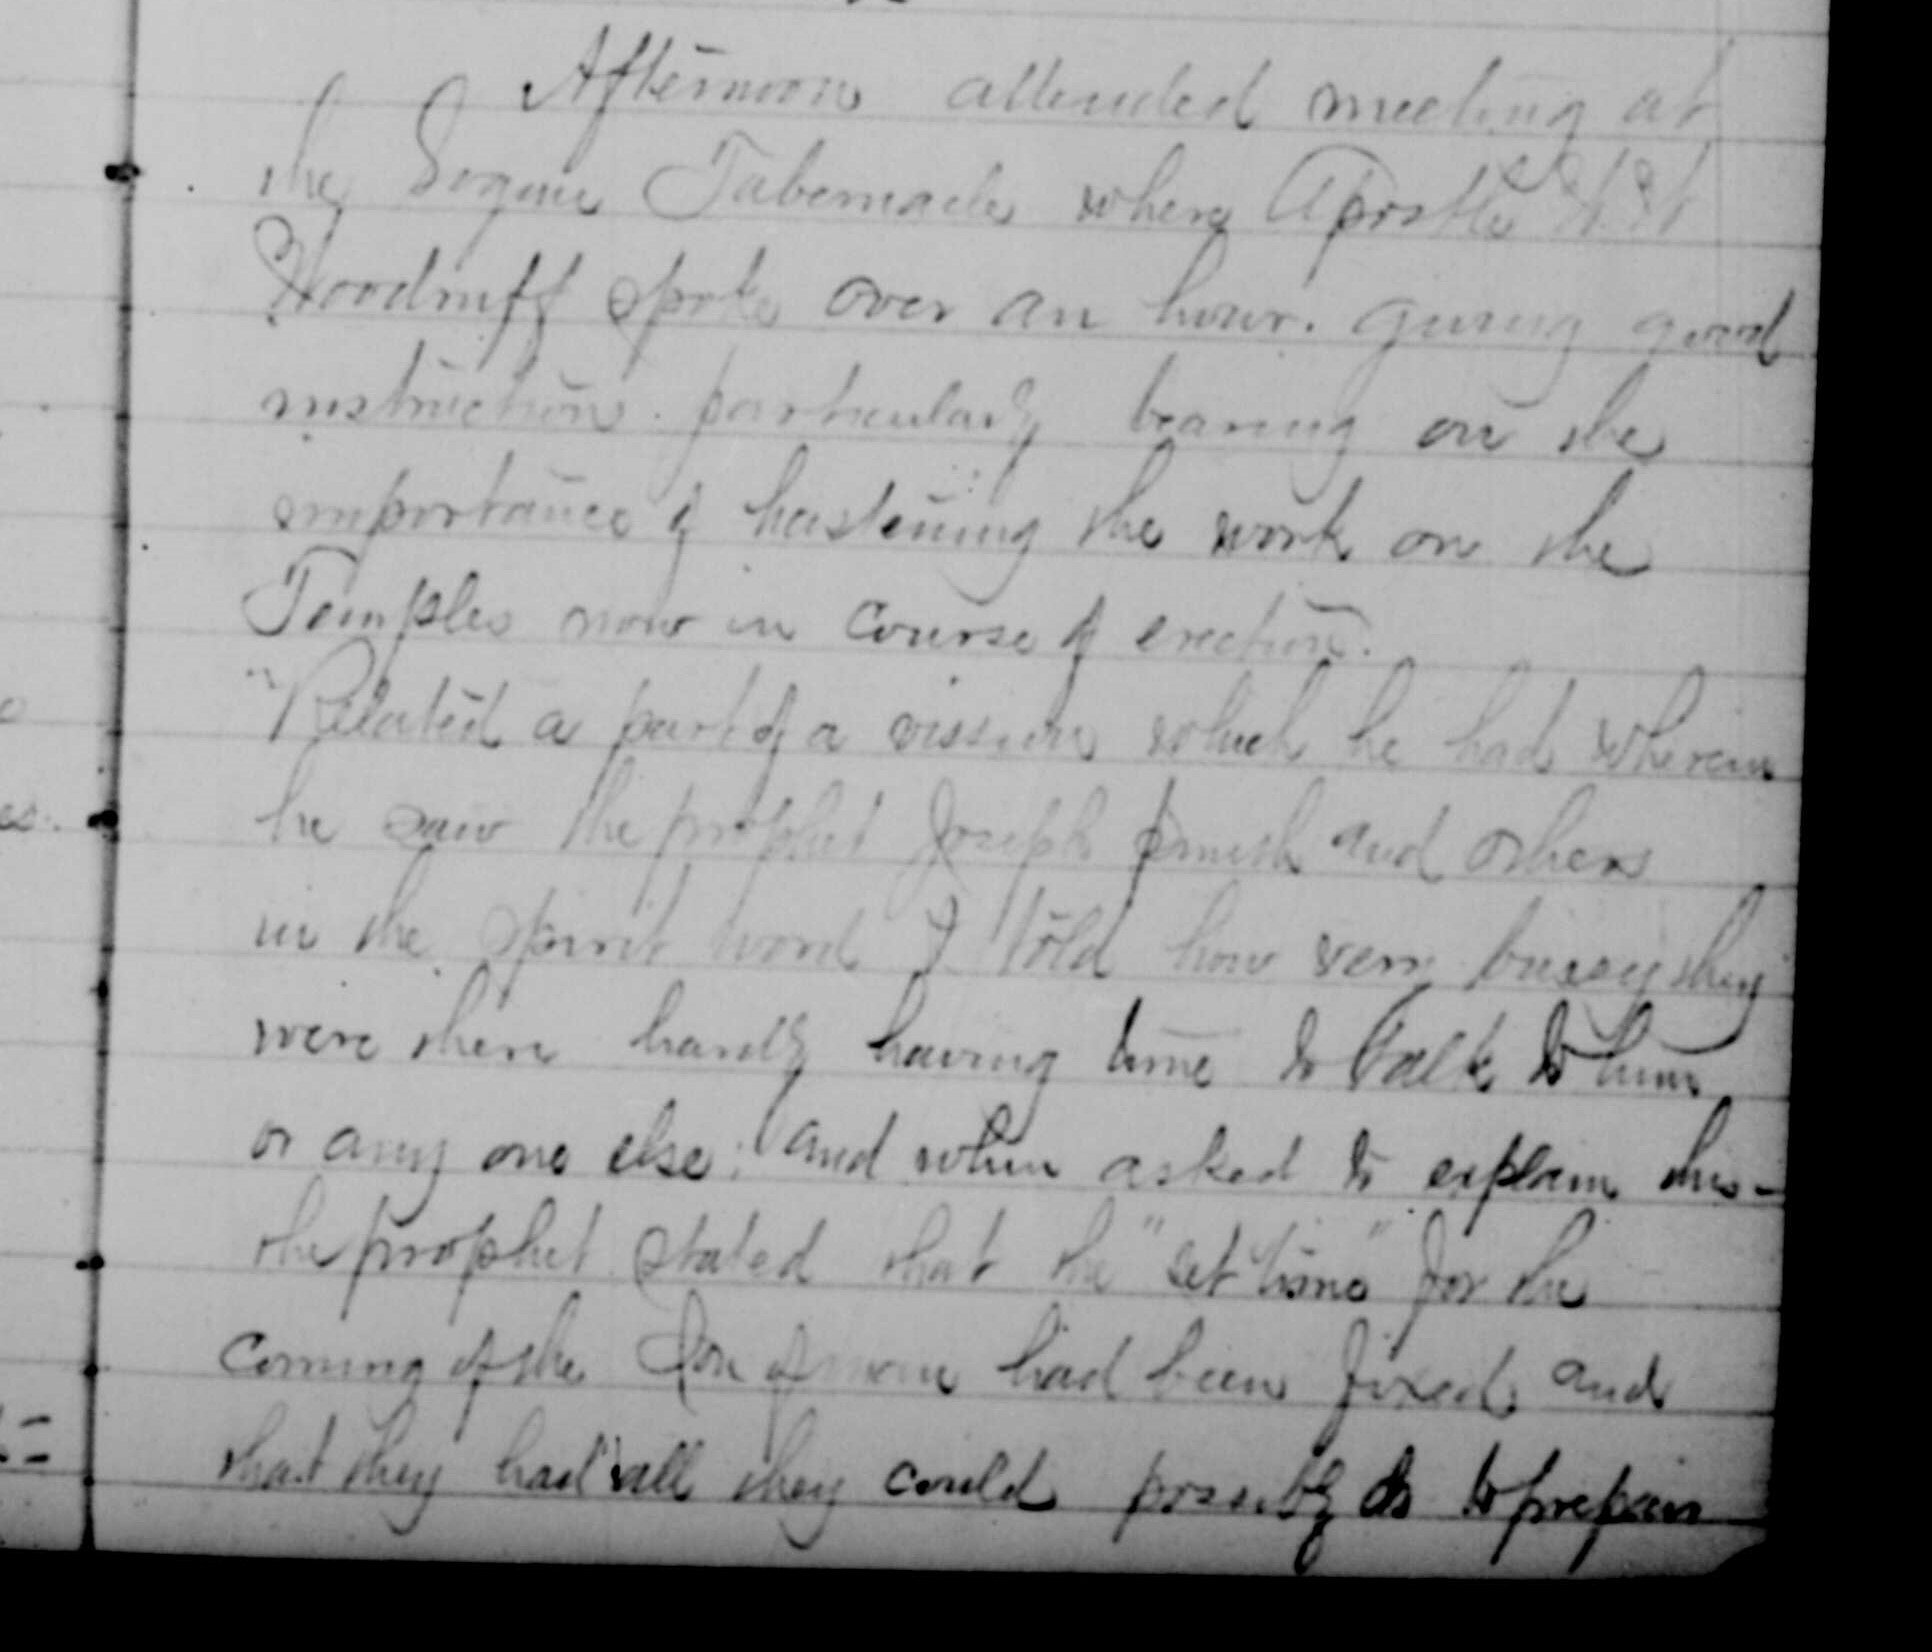 Afternoon attended meeting at
the Logan Tabernacle where Apostle
Woodruff spoke over an hour. giving good
instruction. particularly bearing on the
importance of hastening the work on the
Temples now in course of erection.
Related a part of a vission which he had wherein
he saw the prophet Joseph Smith and others
in the spirit world & told how very bussy they
were there hardly having time to talk to him
or any one else; and when asked to explain this -
the prophet stated that the "set time" for the
coming of the Son of man had been fixed and
that they had all they could possibly do to prepair